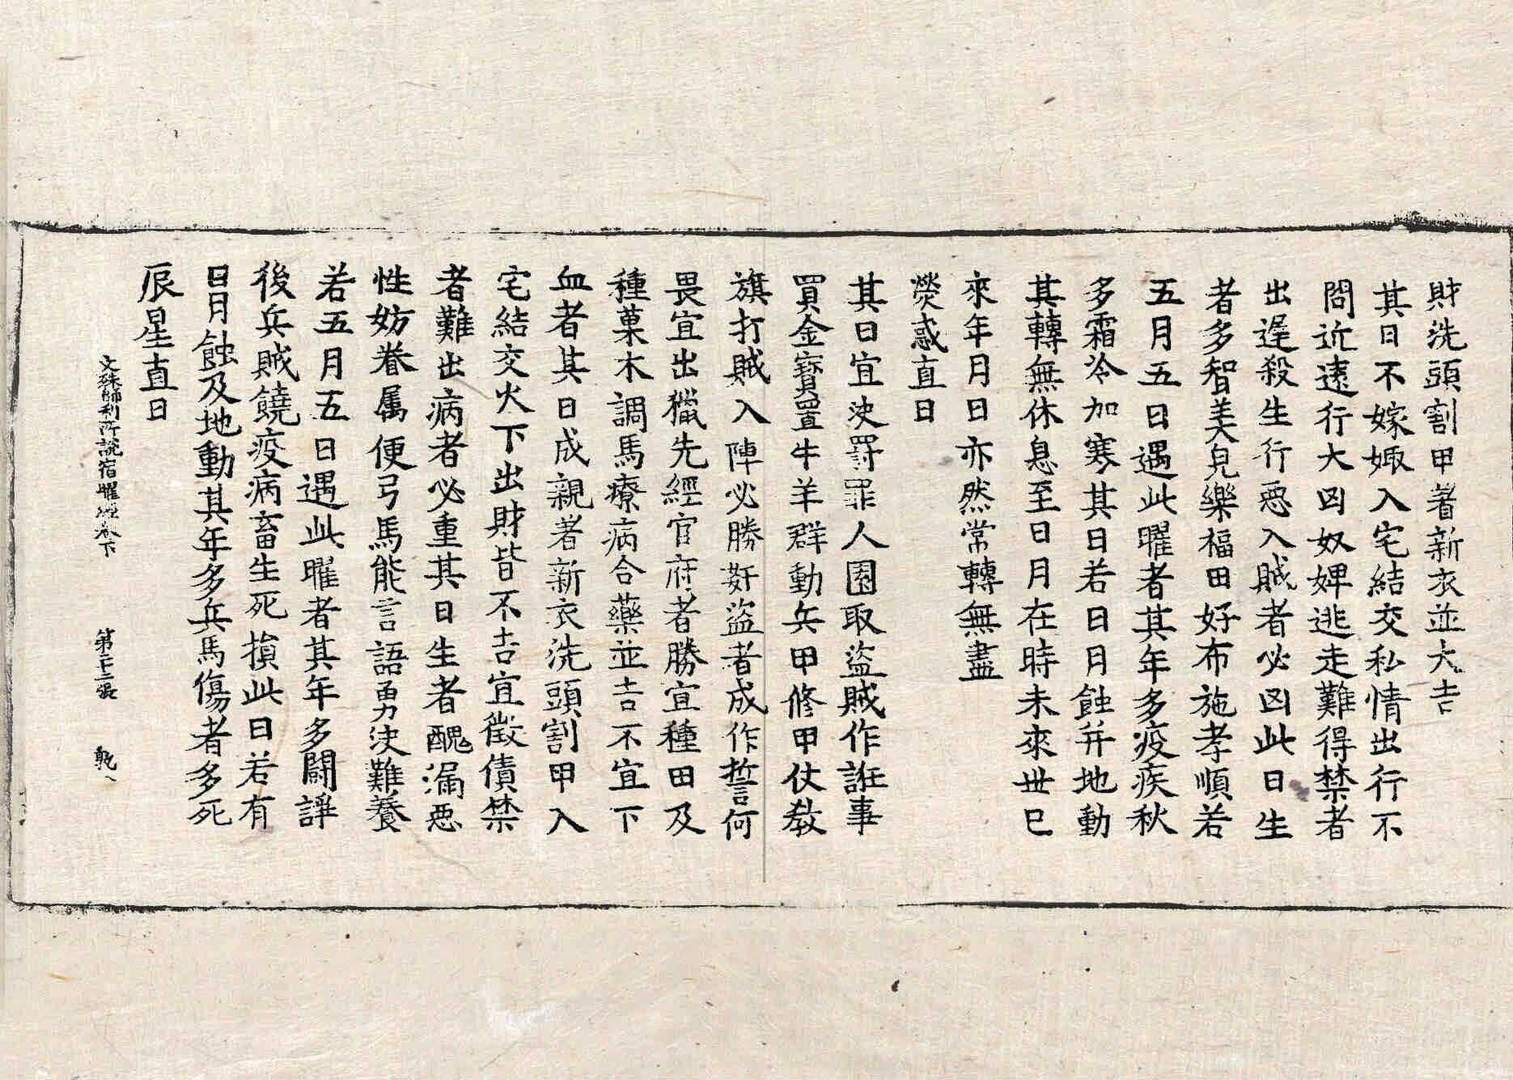 財洗頭割甲著新衣並大吉
其日不嫁娵入宅結交私情出行不
問近遠行大凶奴婢逃走難得禁者
出遅殺生行惡入賊者必凶此日生
者多智美皃樂福田好布施孝順若
五月五日遇此曜者其年多疫疾秋
多霜冷加寒其日若日月蝕并地動
其轉無休息至日月在時未來世已
來年月日亦然常轉無盡
熒惑直日
其日宜決罸罪人園取盜賊作誑事
買金寶置牛羊群動兵甲修甲仗教
旗打賊入陣必勝姧盜者成作誓何
畏宜出獵先經官府者勝宜種田及
種菓木調馬療病合藥並吉不宜下
血者其日成親著新衣洗頭割甲入
宅結交火下出財皆不吉宜徵債禁
者難出病者必重其日生者醜漏惡
性妨眷属便弓馬能言語勇決難養
若五月五日遇此曜者其年多鬪諍
後兵賊饒疫病畜生死損此日若有
日月蝕及地動其年多兵馬傷者多死
辰星直日
文殊師利所說宿曜經卷下 第二十三張 乾八